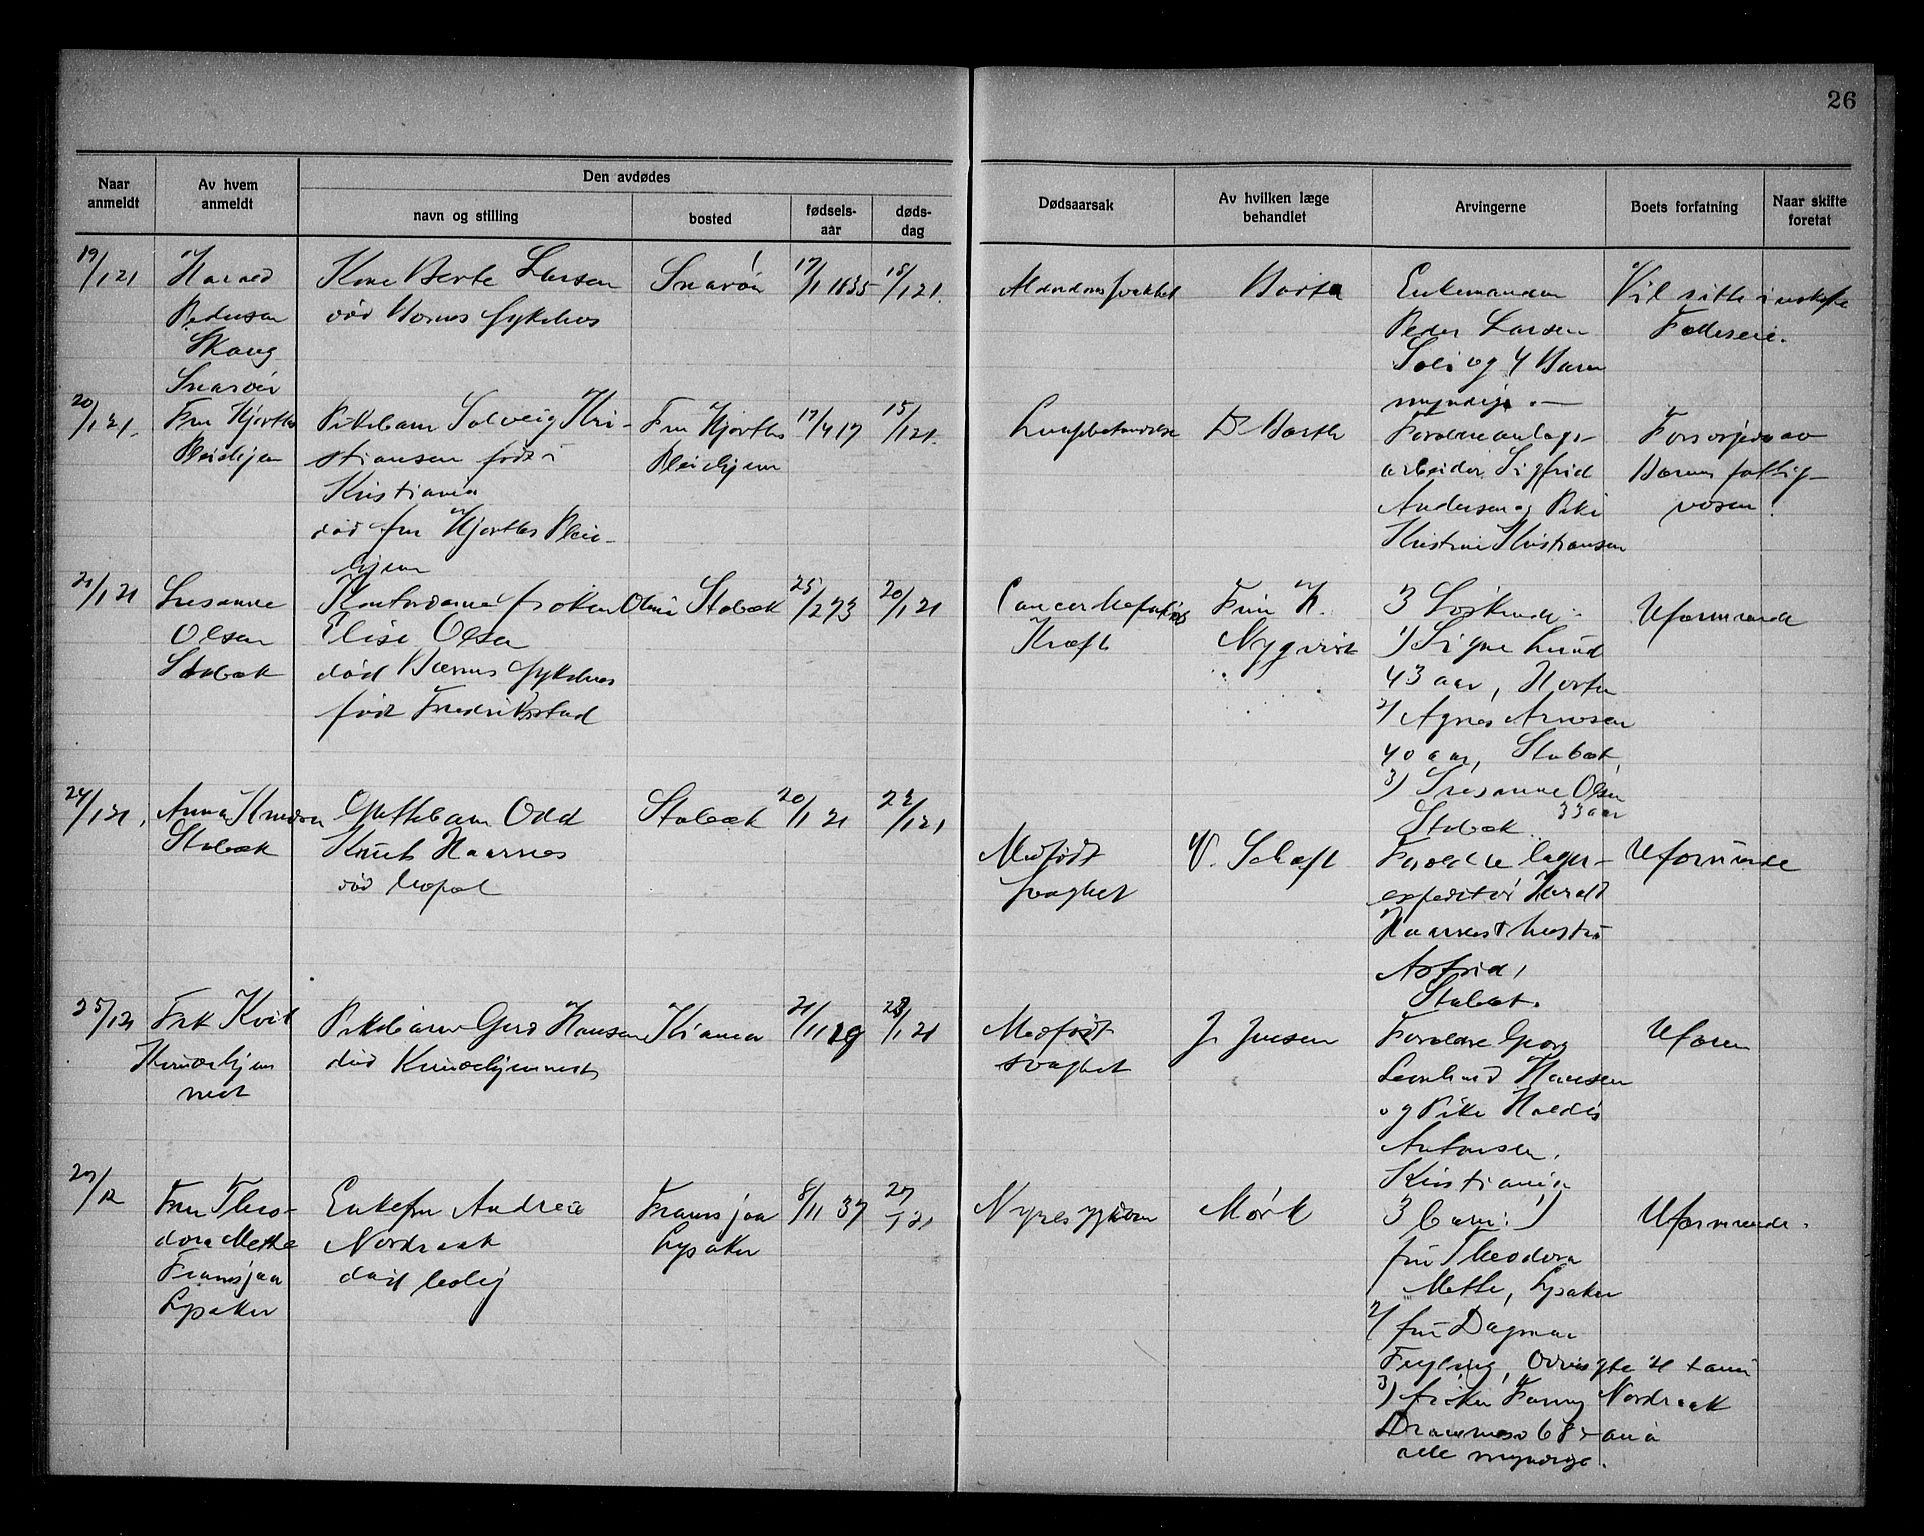 26
Naar anmeldt
Av hvem anmeldt
Den avdødes
navn og stilling
bosted
fødsels-aar
døds-dag
Dødsaarsak
Av hvilken læge behandlet
Arvingerne
Boets forfatning
Naar skifte foretat
19/1 21
Pedersen
Skaug
Snarøen
Kone Berte Larsen
død Sykehus
Snarøn
17/1 1835
18/1 21.
Enkemanden
Peder Larsen
og 4 Barn
myndige.
Vil sitte i uskiftet
Fælleseie.
20/1 21.
Fru Hjorths
Pleiehjem
Pikebarn Solveig Kri-
stiansen født i
Kristiania
død fru Hjorths Pleie-
hjem
Fru Hjorths
Pleiehjem
17/4 17
15/1 21.
Lungebetændelse
Dr Barth
arbeider Sigfrid
Andersen og Pike
Kristine Kristiansen
Forsørjedes av
Bærums fattig-
væsen.
21/1 21
Susanne
Olsen
Stabæk
Kontordame frøken Oline
Elise Olsen
død Bærums Sykehus
født Fredrikstad
Stabæk
25/2 73
20/1 21
Cancer hepatis
Kræft
Nyqvist
3 Søskende:
1) Signe Lund
43 aar, Horten
2/ Agnes
40 aar, Stabæk,
3) Susanne Olsen
Stabæk 33 aar
Uformuende
24/1 21.
Anna Knudsen
Stabæk
Guttebarn Odd
Knut Haarnes
død
Stabæk
20/1 21
22/1 21
Medfødt
svaghet
V. Scheft
Forældre lager-
expeditør Harald
Haarnes & hustru
Astrid,
Stabæk.
Uformuende
25/1 21
Frk Kvit
Kvindehjem
met
Pikebarn Gerd Hansen
død Kvindehjemmet
Kr.ania
21/11 19
23/1 21
Medfødt
svaghet
J. Jensen
Forældre Georg
Leonhard Hansen
og Pike Haldis
Antonsen,
Kristiania
Uform
Fru Theo-
dora Mette
Fransjaa
Lysaker
Enkefru Andrea
Nordraak
død bolig
Fransjaa
Lysaker
8/11 37
27/1 21
Nyresygdom
Mørk
3 barn: 1)
fru Theodora
Mette, Lysaker
2/ fru Dagmar
3) frøken Fanny Nordraak
alle myndige.
Uformuende.